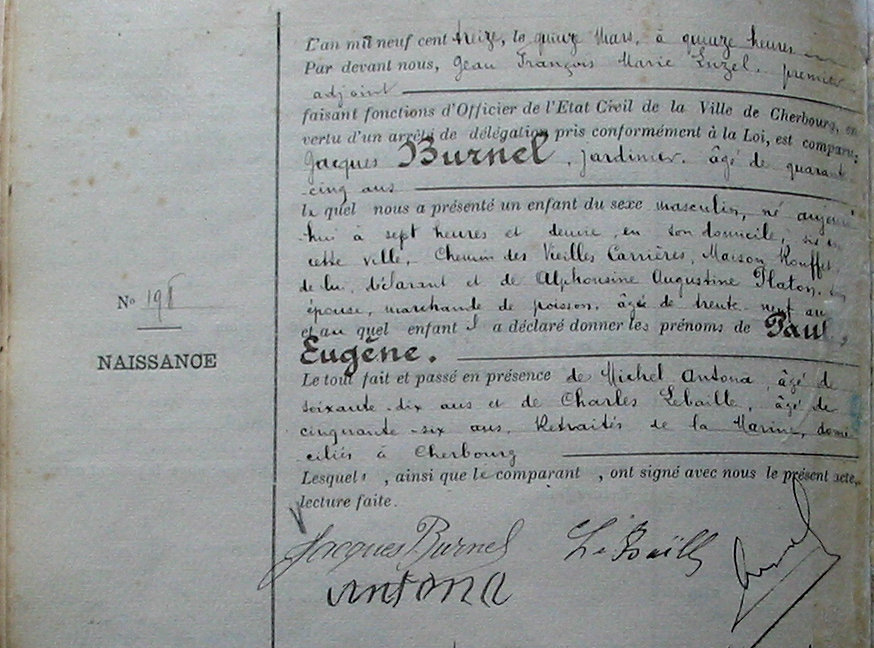 L'an mil neuf cent treize, le quinze Mars, à quinze heures
Par devant nous, Jean François Marie Luzel, premier
adjoint
faisant fonctions d'Officier de l'Etat Civil de la Ville de Cherbourg, en
vertu d'un arrêté de délégation pris conformément à la Loi, est comparu,
Jacques Burnel, jardinier, âgé de quarante
cinq ans
le quel nous a présenté un enfant du sexe masculin, né aujour
hui à sept heures et demie, en son domicile, sis en
cette ville, Chemin des Vieilles Carrières, Maison Rouffet,
de lui, déclarant et de Alphonsine Augustine Platon, son
épouse, marchande de poisson, âgée de trente-neuf ans
et au quel enfant il a déclaré donner les prénoms de Paul,
Eugène.
Le tout fait et passé en présence de Michel Antona, âgé de
soixante-dix ans et de Charles Lebailly, âgé de
cinquante-six ans, Retraités de la Marine, domi
ciliés à Cherbourg
Lesquels, ainsi que le comparant, ont signé avec nous le présent acte,
lecture faite.
No 198
NAISSANCE
Jacques Burnel LeBailly
ANTONA